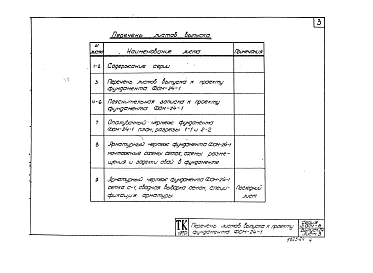 3
Перечень листов выпуска
№ листа
Наименование листа
Примечания
1-2
Содержание серии
3
Перечень листов выпуска к проекту
фундамента ФОН-24-1
4-6
Пояснительная записка к проекту
фундамента ФОН-24-1
7
Опалубочный чертеж фундамента
ФОН-24-1 план, разрезы 1-1 и 2-2
8
Арматурный чертеж фундамента ФОН-24-1
монтажные схемы сеток, схемы разме-
щения и заделки свай в фундаменте
9
Арматурный чертеж фундамента ФОН-24-1
сетка с-1, сводная выборка стали, специ-
фикация арматуры
Последний
лист
ТК
Перечень листов выпуска к проекту
фундамента ФОН-24-1
серия